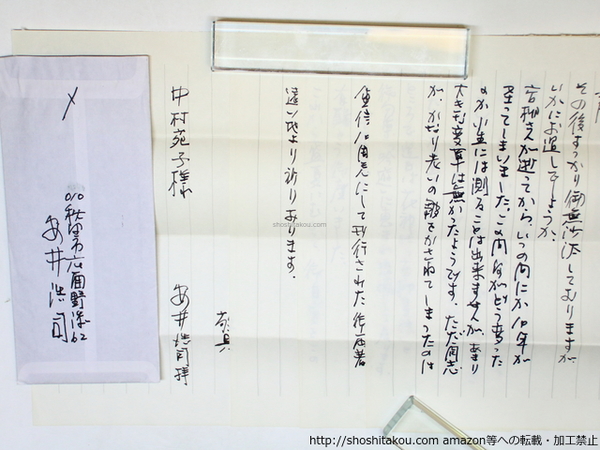 その後すっかり御無沙汰しておりますが
いかにお過しでしょうか。
高柳さんが逝ってから、いつの間にか10年が
至ってしまいました。この間何がどう変った
のか小生には測ることは出来ませんが、あまり
大きな変革は無かったようです。ただ同志
が、かなり老いの齢をかさねてしまったのは
にして刊行された
遠い地より祈りおります。
敬具
安井浩司拝
中村苑子様
010秋田市広面野添62
安井浩司
shoshitakou.com
http://shoshitakou.com amazon等への転載・加工禁止